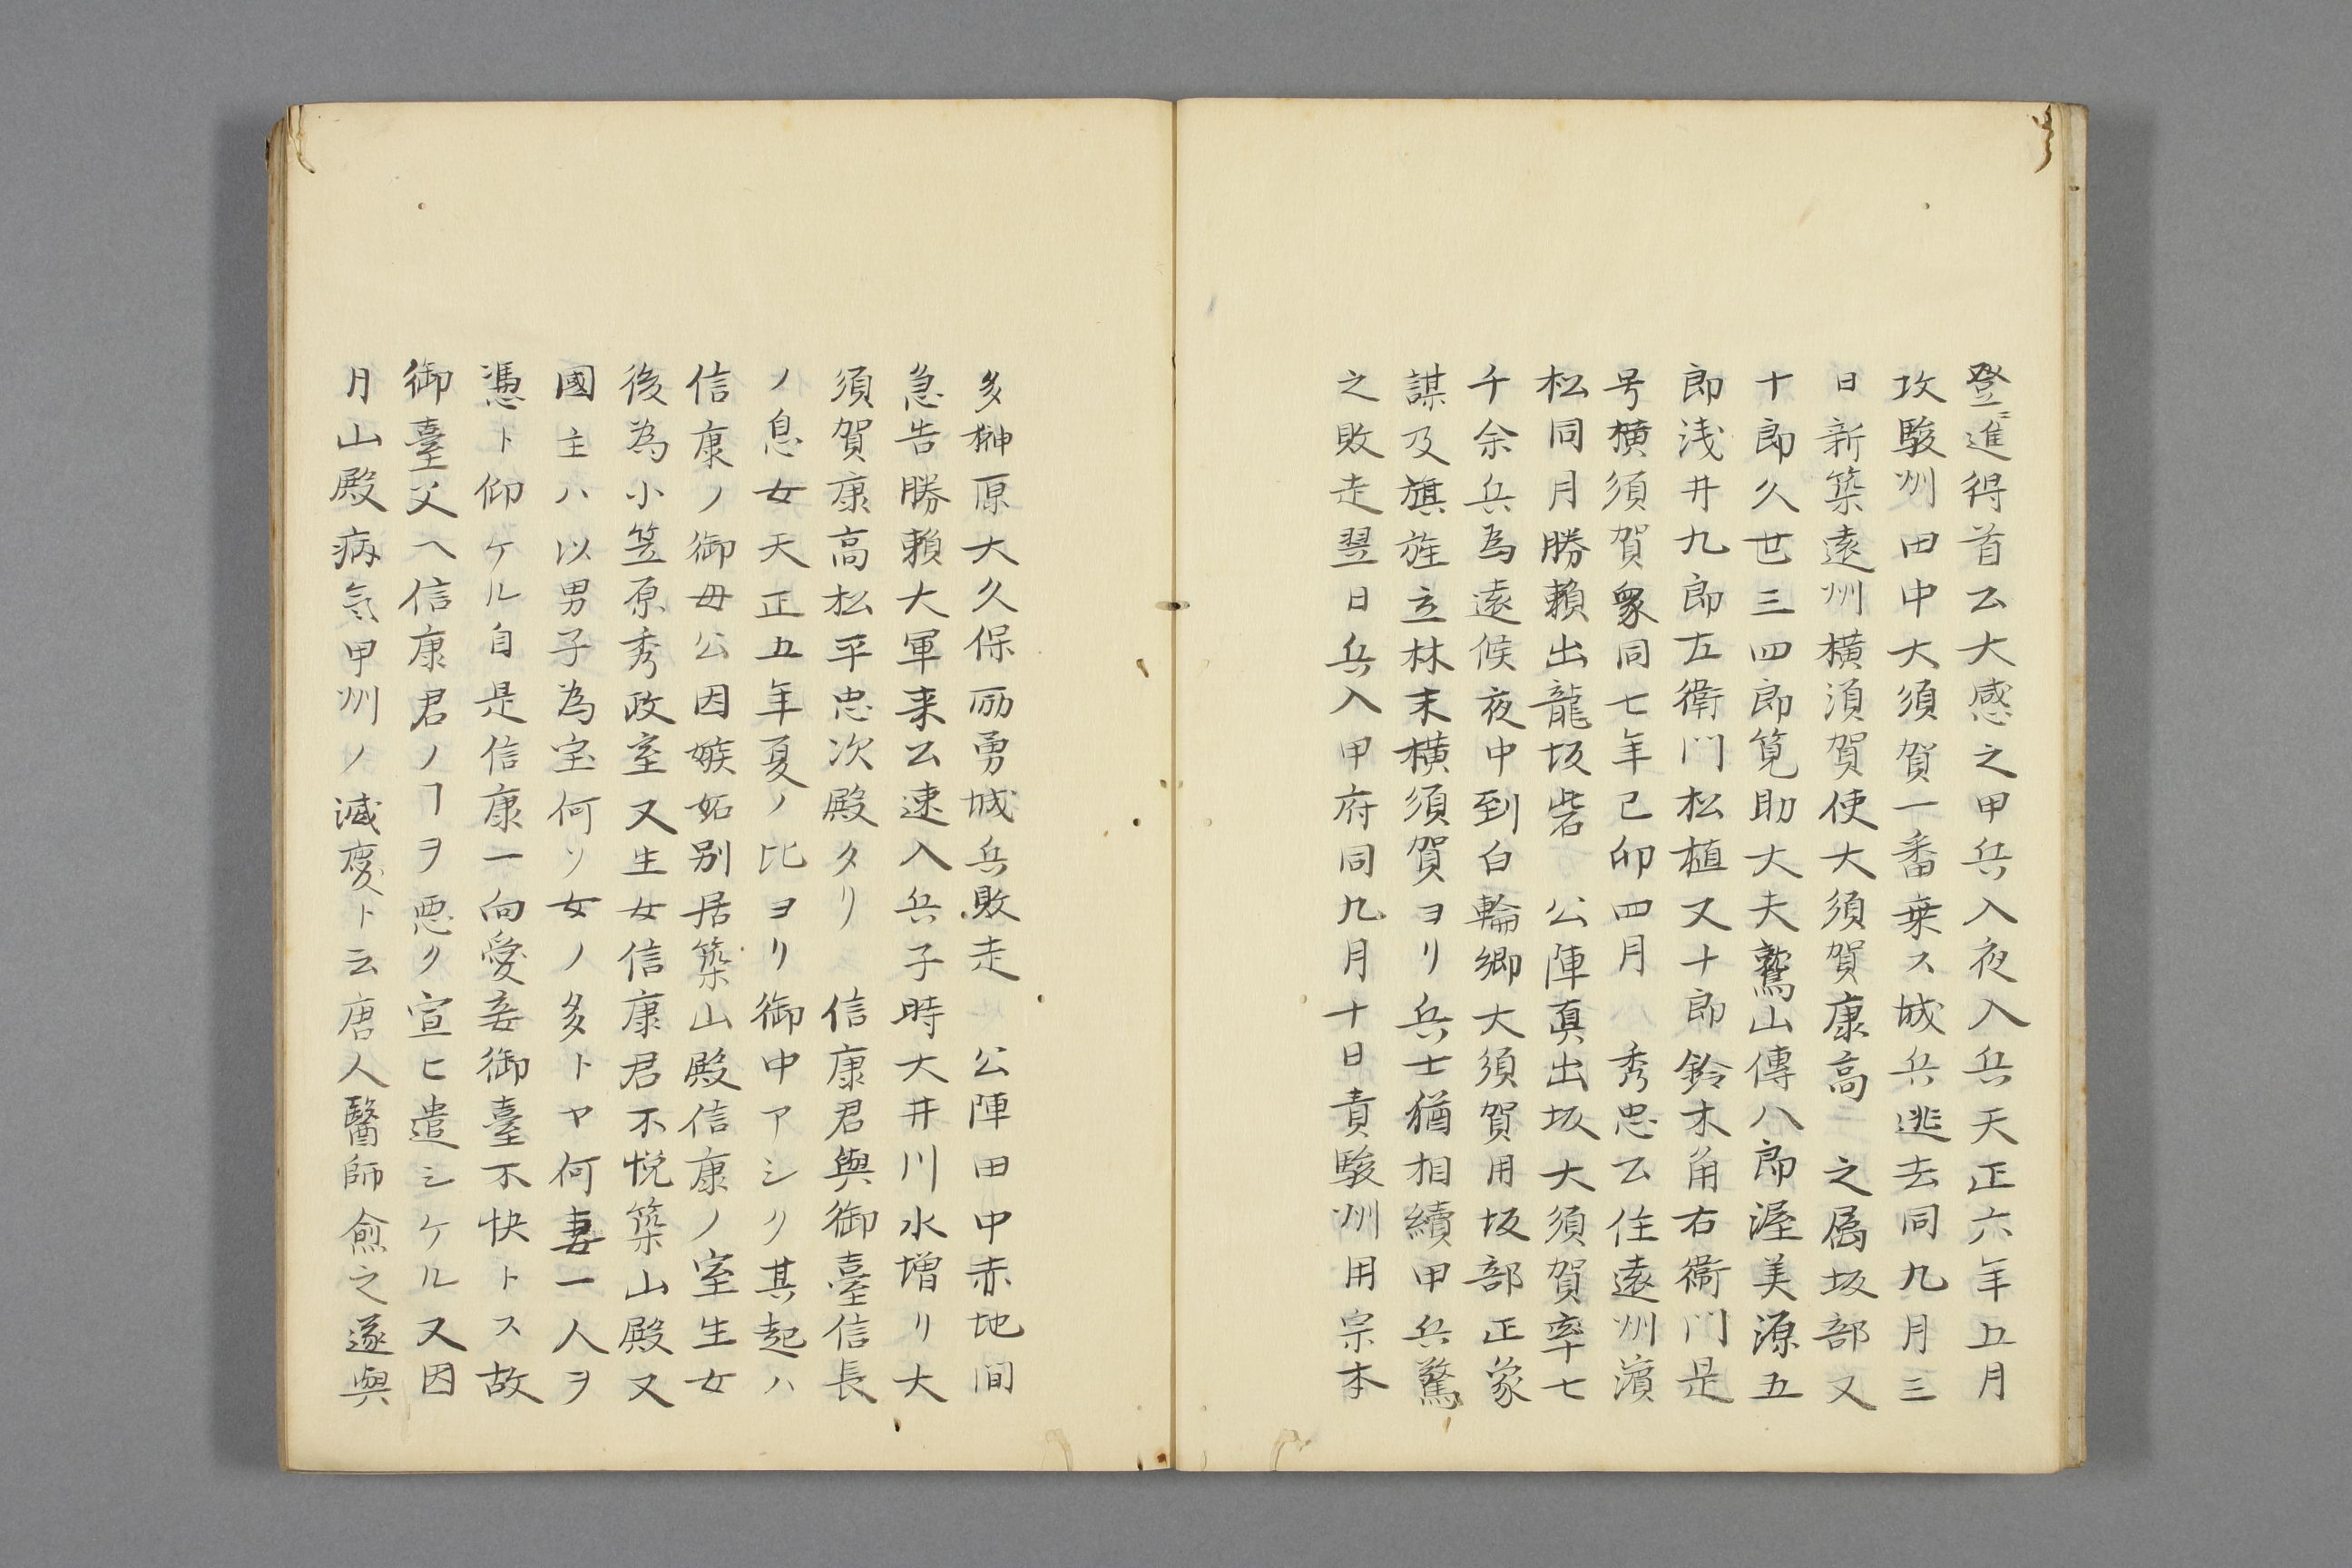 登ニ進得首公大感之甲兵入夜入兵天正六年五月
攻駿州田中大須賀一番乗ス城兵逃去同九月三
日新築遠州横須賀使大須賀康高 之属坂部又
十郎久世三四郎筧助大夫鷲山傳八郎渥美源五
郎浅井九郎五衛門松植又十郎鈴木角右衛門是
号横須賀衆同七年己卯四月 秀忠公住遠州濱
松同月勝頼出龍坂砦 公陣真出坂大須賀率七
千余兵為遠候夜中到白輪郷大須賀用坂部正象
謀及旗旌立林末横須賀ヨリ兵士猶相續甲兵驚
之敗走翌日兵入甲府同九月十日責駿州用宗本
多榊原大久保励勇城兵敗走 公陣田中赤地間
急告勝頼大軍来公速入兵子時大井川水増リ大
須賀康高松平忠次殿タリ 信康君與御臺信長
ノ息女天正五年夏ノ比ヨリ御中アシク其起ハ
信康ノ御母公因嫉妬別居築山殿信康ノ室生女
後為小笠原秀政室又生女信康君不悦築山殿又
國主ハ以男子為宝何ソ女ノ多トヤ何妻一人ヲ
憑ト仰ケル自是信康一向愛妾御臺不快トス故
御臺父ヘ信康君ノヿヲ悪ク宣ヒ遣シケル又因
月山殿病気甲州ノ滅慶ト云唐人醫師愈之遂與